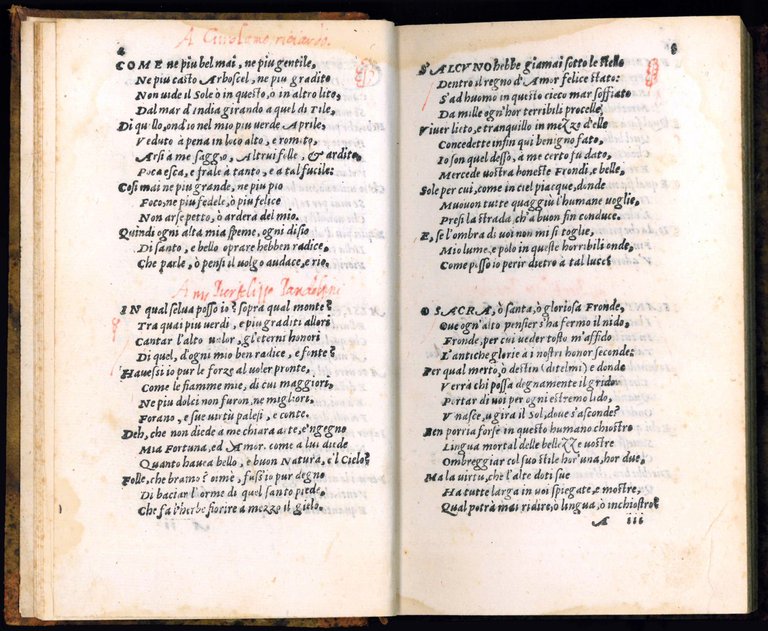 COME ne piu bel mai, ne piu gentile,
Ne piu casto Arboscel, ne piu gradito
Non uide il Sole ò in questo, ò in altro lito,
Dal mar d'India girando a quel di Tile,
Di quello, ond'io nel mio piu uerde Aprile,
Veduto à pena in loco alto, e romito,
Arsi a me saggio, Altrui folle, & ardito,
Poca esca, e frale à tanto, e a tal fucile:
Cosi mai ne piu grande, ne piu pio
Foco, ne piu fedele, ò piu felice
Non arse petto, ò arderà del mio.
Quindi ogni alta mia speme, ogni disio
Di santo, e bello oprare hebben radice,
Che parle, ò pensi il uolgo audace, e rio.
IN qual selua posso io? sopra qual monte?
Tra quai piu uerdi, e piu graditi allori
Cantar l'alto ualor, gl'eterni honori
Di quel, d'ogni mio ben radice, e fonte?
Hauessi io pur le forze al uoler pronte,
Come le fiamme mie, di cui maggiori,
Ne piu dolci non furon, ne migliori,
Forano, e sue uirtù palesi, e conte.
Deh, che non diede a me chiara arte, e'ngegno
Mia Fortuna, ed Amor, come a lui diede
Quanto hauea bello, e buon Natura, e'l Cielo?
Folle, che bramo? oime, fuss'io pur degno
Di baciar l'orme di quel santo piede,
Che fa l'herbe fiorire a mezzo il gielo.
A iii
S'ALCVNO hebbe giamai sotto le stelle
Dentro il regno d'Amor felice stato:
S'ad huomo in questo cieco mar soffiato
Da mille ogn'hor terribili procelle,
Viuer lieto, e tranquillo in mezzo d'elle
Concedette infin qui benigno fato,
Io son quel desso, a me certo fu dato,
Mercede uostra honeste Frondi, e belle,
Sole per cui, come in ciel piacque, donde
Muouon tutte quaggiù l'humane uoglie,
Presi la strada, ch'a buon fin conduce.
E, se l'ombra di uoi non mi si toglie,
Mio lume, e polo in queste horribili onde,
Come posso io perir dietro a tal luce?
O SACRA, ò santa, ò gloriosa Fronde,
Oue ogn'alto pensier s'ha fermo il nido,
Fronde, per cui ueder tosto m'affido
L'antiche glorie a i nostri honor seconde:
Per qual merto, ò destin (ditelmi) e donde
Verrà chi possa degnamente il grido
Portar di uoi per ogni estremo lido,
V nasce, u gira il Sol, doue s'asconde?
Ben porria forse in questo humano chiostro
Lingua mortal delle bellezze uostre
Ombreggiar col suo stile hor'una, hor due,
Ma la uirtu, che l'alte doti sue
Ha tutte larga in uoi spiegate, e mostre,
Qual potrà mai ridire, o lingua, ò inchiostro?
A iii